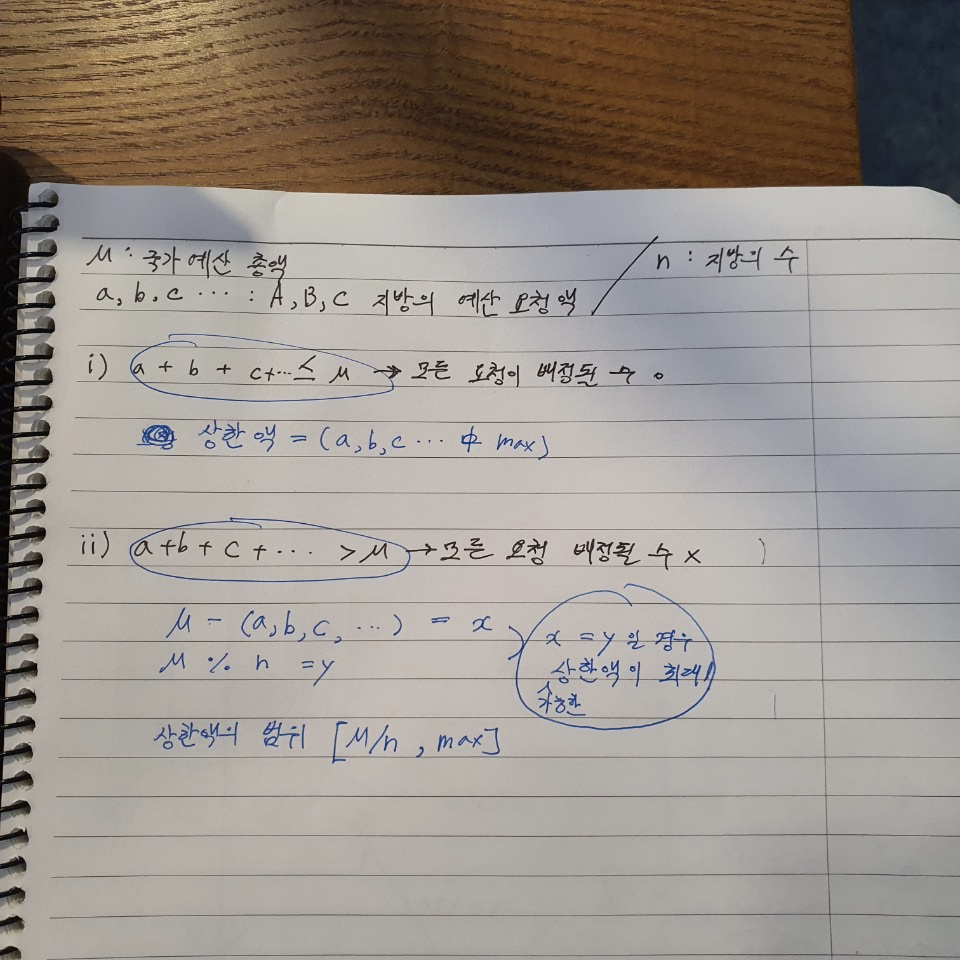 M : 국가 예산 총액 / n : 지방의 수
a, b, c ... : A, B, C 지방의 예산 요청액
i) a + b + c+... ≤ M → 모든 요청이 배정될 수 o
상한액 = (a, b, c ... 中 max)
ii) a+b+c+... > M → 모든 요청 배정될 수 x
M - (a, b, c, ...) = x
M % n = y
x = y 일 경우
가능한 상한액이 최대!
상한액의 범위 [M/n , max]